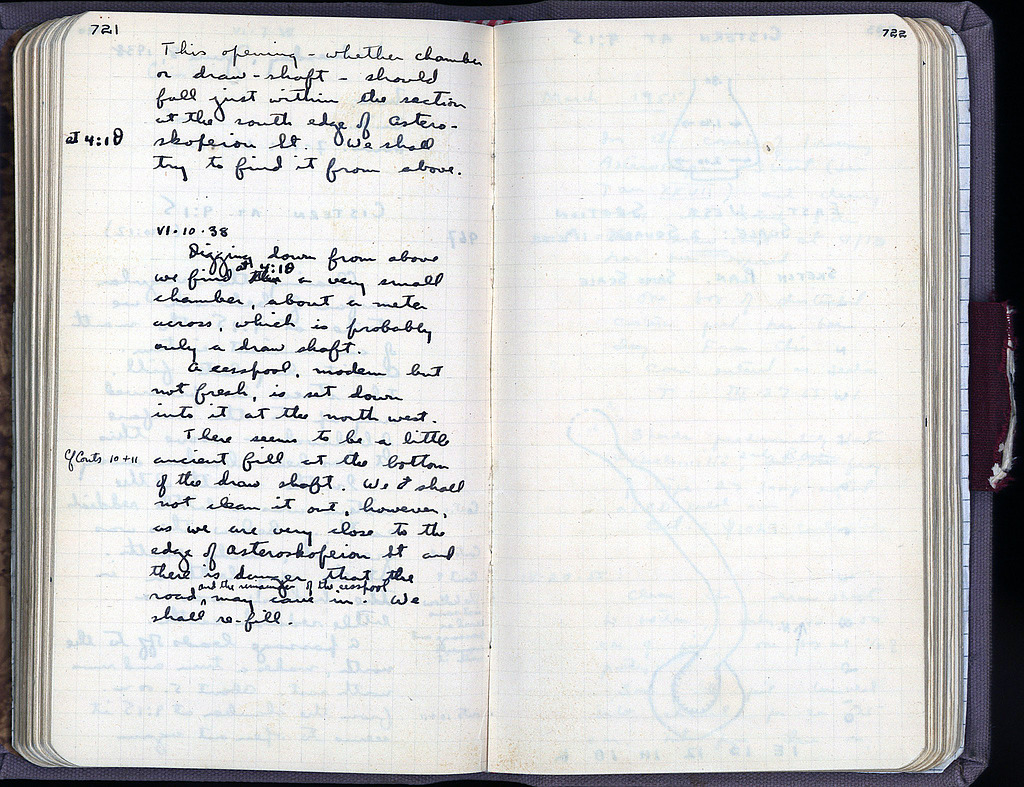 721
This opening - whether chamber
or draw-shaft - should
fall just within the section
at the south edge of Astero-
at 4:1θ skopeion St. We shall
try to find it from above.
VI·10·38
Digging down from above
at 4:1θ
we find a very small
chamber, about a meter
across, which is probably
only a draw shaft.
A cesspool, modern but
not fresh, is set down
into it at the north west.
There seems to be a little
Cf Conts 10+11 ancient fill at the bottom
of the draw shaft. We shall
not clean it out, however,
as we are very close to the
edge of Asteroskopeion St and
there is danger that the
and the remainder of the cesspool
road, may cave in. We
shall re-fill.
722